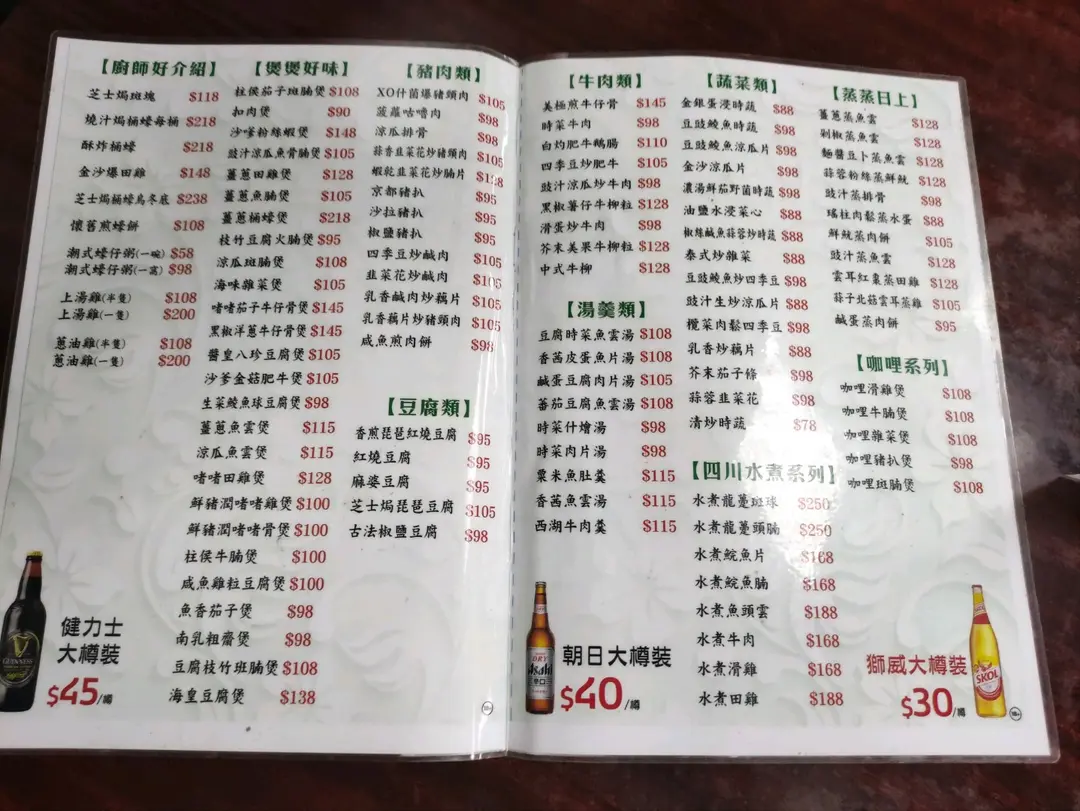 【廚師好介紹】
芝士焗班塊 $118
燒汁焗桶蠔每桶 $218
酥炸桶蠔 $218
金沙爆田雞 $148
芝士焗桶蠔烏冬底 $238
懷舊煎蠔餅 $108
潮式蠔仔粥(一碗) $58
潮式蠔仔粥(一窩) $98
上湯雞(半隻) $108
上湯雞(一隻) $200
蔥油雞(半隻) $108
蔥油雞(一隻) $200
健力士
大樽裝
$45/樽
【煲煲好味】
柱侯茄子斑腩煲 $108
扣肉煲 $90
沙嗲粉絲蝦煲 $148
豉汁涼瓜魚骨腩煲 $105
薑蔥田雞煲 $128
薑蔥魚腩煲 $105
薑蔥桶蠔煲 $218
枝竹豆腐火腩煲 $95
涼瓜斑腩煲 $108
海味雜菜煲 $105
啫啫茄子牛仔骨煲 $145
黑椒洋蔥牛仔骨煲 $145
醬皇八珍豆腐煲 $105
沙爹金菇肥牛煲 $105
生菜鯪魚球豆腐煲 $98
薑蔥魚雲煲 $115
涼瓜魚雲煲 $115
啫啫田雞煲 $128
鮮豬潤啫啫雞煲 $100
鮮豬潤啫啫骨煲 $100
柱侯牛腩煲 $100
咸魚雞粒豆腐煲 $100
魚香茄子煲 $98
南乳粗齋煲 $98
豆腐枝竹班腩煲 $108
海皇豆腐煲 $138
【豬肉類】
XO什菌爆豬頸肉 $105
菠蘿咕嚕肉 $98
涼瓜排骨 $98
蒜香韭菜花炒豬頸肉 $105
蝦乾韭菜花炒腩片 $128
京都豬扒 $95
沙拉豬扒 $95
椒鹽豬扒 $95
四季豆炒鹹肉 $105
韭菜花炒鹹肉 $105
乳香鹹肉炒藕片 $105
乳香藕片炒豬頸肉 $105
咸魚煎肉餅 $98
【豆腐類】
香煎琵琶紅燒豆腐 $95
紅燒豆腐 $95
麻婆豆腐 $95
芝士焗琵琶豆腐 $105
古法椒鹽豆腐 $98
【牛肉類】
美極煎牛仔骨 $145
時菜牛肉 $98
白灼肥牛鵝腸 $110
四季豆炒肥牛 $105
豉汁涼瓜炒牛肉 $98
黑椒薯仔牛柳粒 $128
滑蛋炒牛肉 $98
芥末美果牛柳粒 $128
中式牛柳 $128
【湯羹類】
豆腐時菜魚雲湯 $108
香茜皮蛋魚片湯 $108
鹹蛋豆腐肉片湯 $105
蕃茄豆腐魚雲湯 $108
時菜什燴湯 $98
時菜肉片湯 $98
粟米魚肚羹 $115
香茜魚雲湯 $115
西湖牛肉羹 $115
朝日大樽裝
$40/樽
【蔬菜類】
金銀蛋浸時蔬 $88
豆豉鯪魚時蔬 $98
豆豉鯪魚涼瓜片 $98
金沙涼瓜片 $98
濃湯鮮茄野菌時蔬 $98
油鹽水浸菜心 $88
椒絲鹹魚蒜蓉炒時蔬 $88
泰式炒雜菜 $88
豆豉鯪魚炒四季豆 $98
豉汁生炒涼瓜片 $88
欖菜肉鬆四季豆 $98
乳香炒藕片 $88
芥末茄子條 $98
蒜蓉韭菜花 $98
清炒時蔬 $78
【四川水煮系列】
水煮龍躉斑球 $250
水煮龍躉頭腩 $250
水煮鯇魚片 $168
水煮鯇魚腩 $168
水煮魚頭雲 $188
水煮牛肉 $168
水煮滑雞 $168
水煮田雞 $188
【蒸蒸日上】
薑蔥蒸魚雲 $128
剁椒蒸魚雲 $128
麵醬豆卜蒸魚雲 $128
蒜蓉粉絲蒸鮮魷 $128
豉汁蒸排骨 $98
瑤柱肉鬆蒸水蛋 $88
鮮魷蒸肉餅 $105
豉汁蒸魚雲 $128
雲耳紅棗蒸田雞 $128
蒜子北菇雲耳蒸雞 $105
鹹蛋蒸肉餅 $95
【咖哩系列】
咖哩滑雞煲 $108
咖哩牛腩煲 $108
咖哩雜菜煲 $108
咖哩豬扒煲 $98
咖哩斑腩煲 $108
獅威大樽裝
$30/樽
GUINNESS
Asahi
SKOL
18+